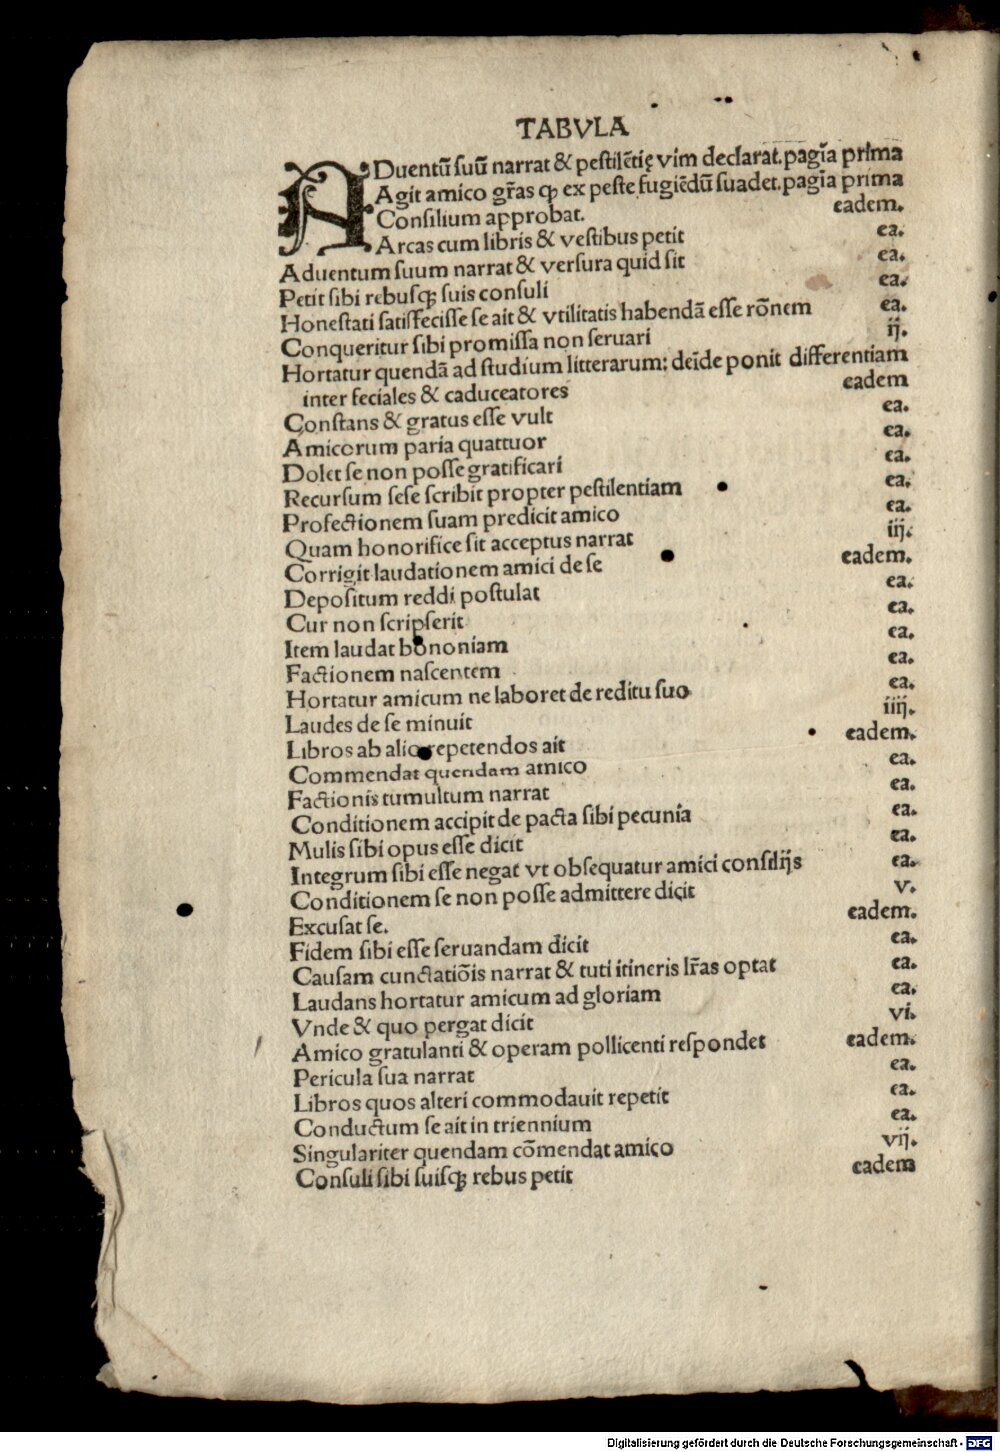 TABVLA
ADuentũ suũ narrat & pestilẽtię vim declarat. pagĩa prima
Agit amico gr̃as ꝙ ex peste fugiẽdũ suadet. pagĩa prima
Consilium approbat. eadem.
Arcas cum libris & vestibus petit ea.
Aduentum suum narrat & versura quid sit ea.
Petit sibi rebusqꝫ suis consuli ea.
Honestati satisfecisse se ait & vtilitatis habendã esse rõnem ea.
Conqueritur sibi promissa non seruari ij.
Hortatur quendã ad studium litterarum: deĩde ponit differentiam
inter feciales & caduceatores eadem
Constans & gratus esse vult ea.
Amicorum paria quattuor ea.
Dolet se non posse gratificari ea.
Recursum sese scribit propter pestilentiam ea.
Profectionem suam predicit amico ea.
Quam honorifice sit acceptus narrat iij.
Corrigit laudationem amici de se eadem.
Depositum reddi postulat ea.
Cur non scripserit ea.
Item laudat bononiam ea.
Factionem nascentem ea.
Hortatur amicum ne laboret de reditu suo ea.
Laudes de se minuit iiij.
Libros ab alio repetendos ait eadem.
Commendat quendam amico ea.
Factionis tumultum narrat ea.
Conditionem accipit de pacta sibi pecunia ea.
Mulis sibi opus esse dicit ea.
Integrum sibi esse negat vt obsequatur amici consilijs ea.
Conditionem se non posse admittere dicit v.
Excusat se. eadem.
Fidem sibi esse seruandam dicit ea.
Causam cunctatiõis narrat & tuti itineris lr̃as optat ea.
Laudans hortatur amicum ad gloriam ea.
Vnde & quo pergat dicit vi.
Amico gratulanti & operam pollicenti respondet eadem.
Pericula sua narrat ea.
Libros quos alteri commodauit repetit ea.
Conductum se ait in triennium ea.
Singulariter quendam cõmendat amico vij.
Consuli sibi suisqꝫ rebus petit eadem
Digitalisierung gefördert durch die Deutsche Forschungsgemeinschaft - DFG